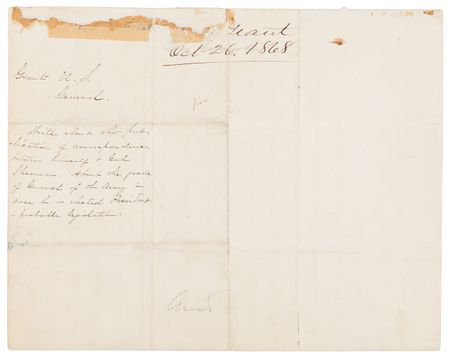 Grant
Oct 26. 1868
Grant U. S.
General.
Write about the pub-
lication of correspondence
between himself & Genl
Sherman. About the grade
of General of the Army in
case he is elected President
- probable legislation.